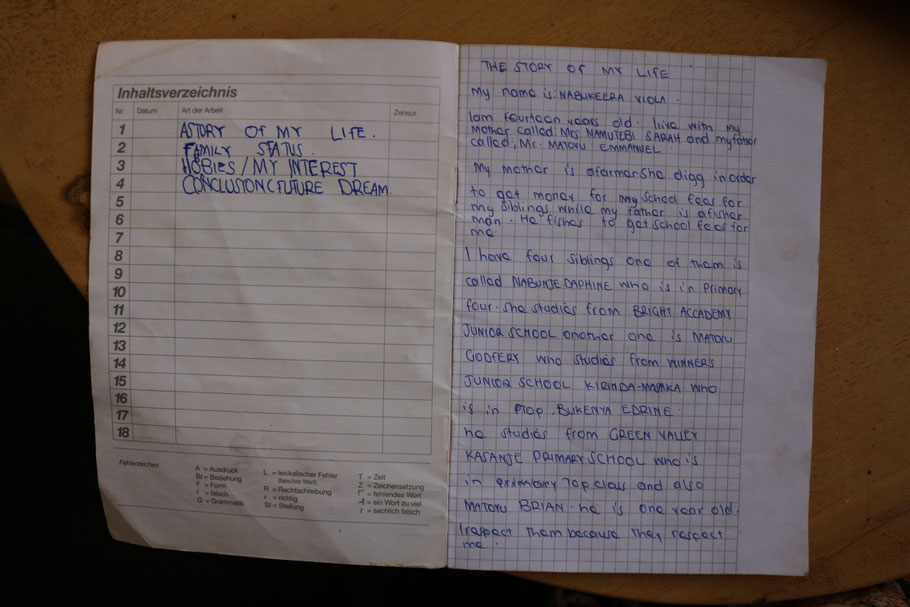 Inhaltsverzeichnis
Nr. Datum Art der Arbeit Zensur
1 ASTORY OF MY LIFE.
2 FAMILY STATUS.
3 HOBIES/MY INTEREST
4 CONCLUSION(FUTURE DREAM.
5
6
7
8
9
10
11
12
13
14
15
16
17
18
Fehlerzeichen
A = Ausdruck
Bz = Beziehung
F = Form
f = falsch
G = Grammatik
L = lexikalischer Fehler
(falsches Wort)
R = Rechtschreibung
r = richtig
St = Stellung
T = Zeit
Z = Zeichensetzung
Γ = fehlendes Wort
= ein Wort zu viel
= sachlich falsch
THE STORY OF MY LIFE
My name is NABUKEERA VIOLA.
Iam fourteen years old. I live with my
mother called; Mrs NAMUTEBI SARAH and my father
called; Mr. MATOVU EMMANUEL
My mother is afarmer. She digg inorder
to get money for my school fees for
my siblings while my father is afisher
man. He fishes to get school fees for
me.
I have four siblings one of them is
called NABUNJE DAPHINE who is in Primary
four. She studies from BRIGHT ACCADEMY
JUNIOR SCHOOL another one is MATOVU
GODFERY who studies from WINNERS
JUNIOR SCHOOL KIRINDA-MASAKA who
is in Ptop. BUKENYA EDRINE.
he studies from GREEN VALLEY
KASANJE PRIMARY SCHOOL who is
in primary Top class and also
MATOVU BRIAN. he is one year old.
I respect them because they respect
me.